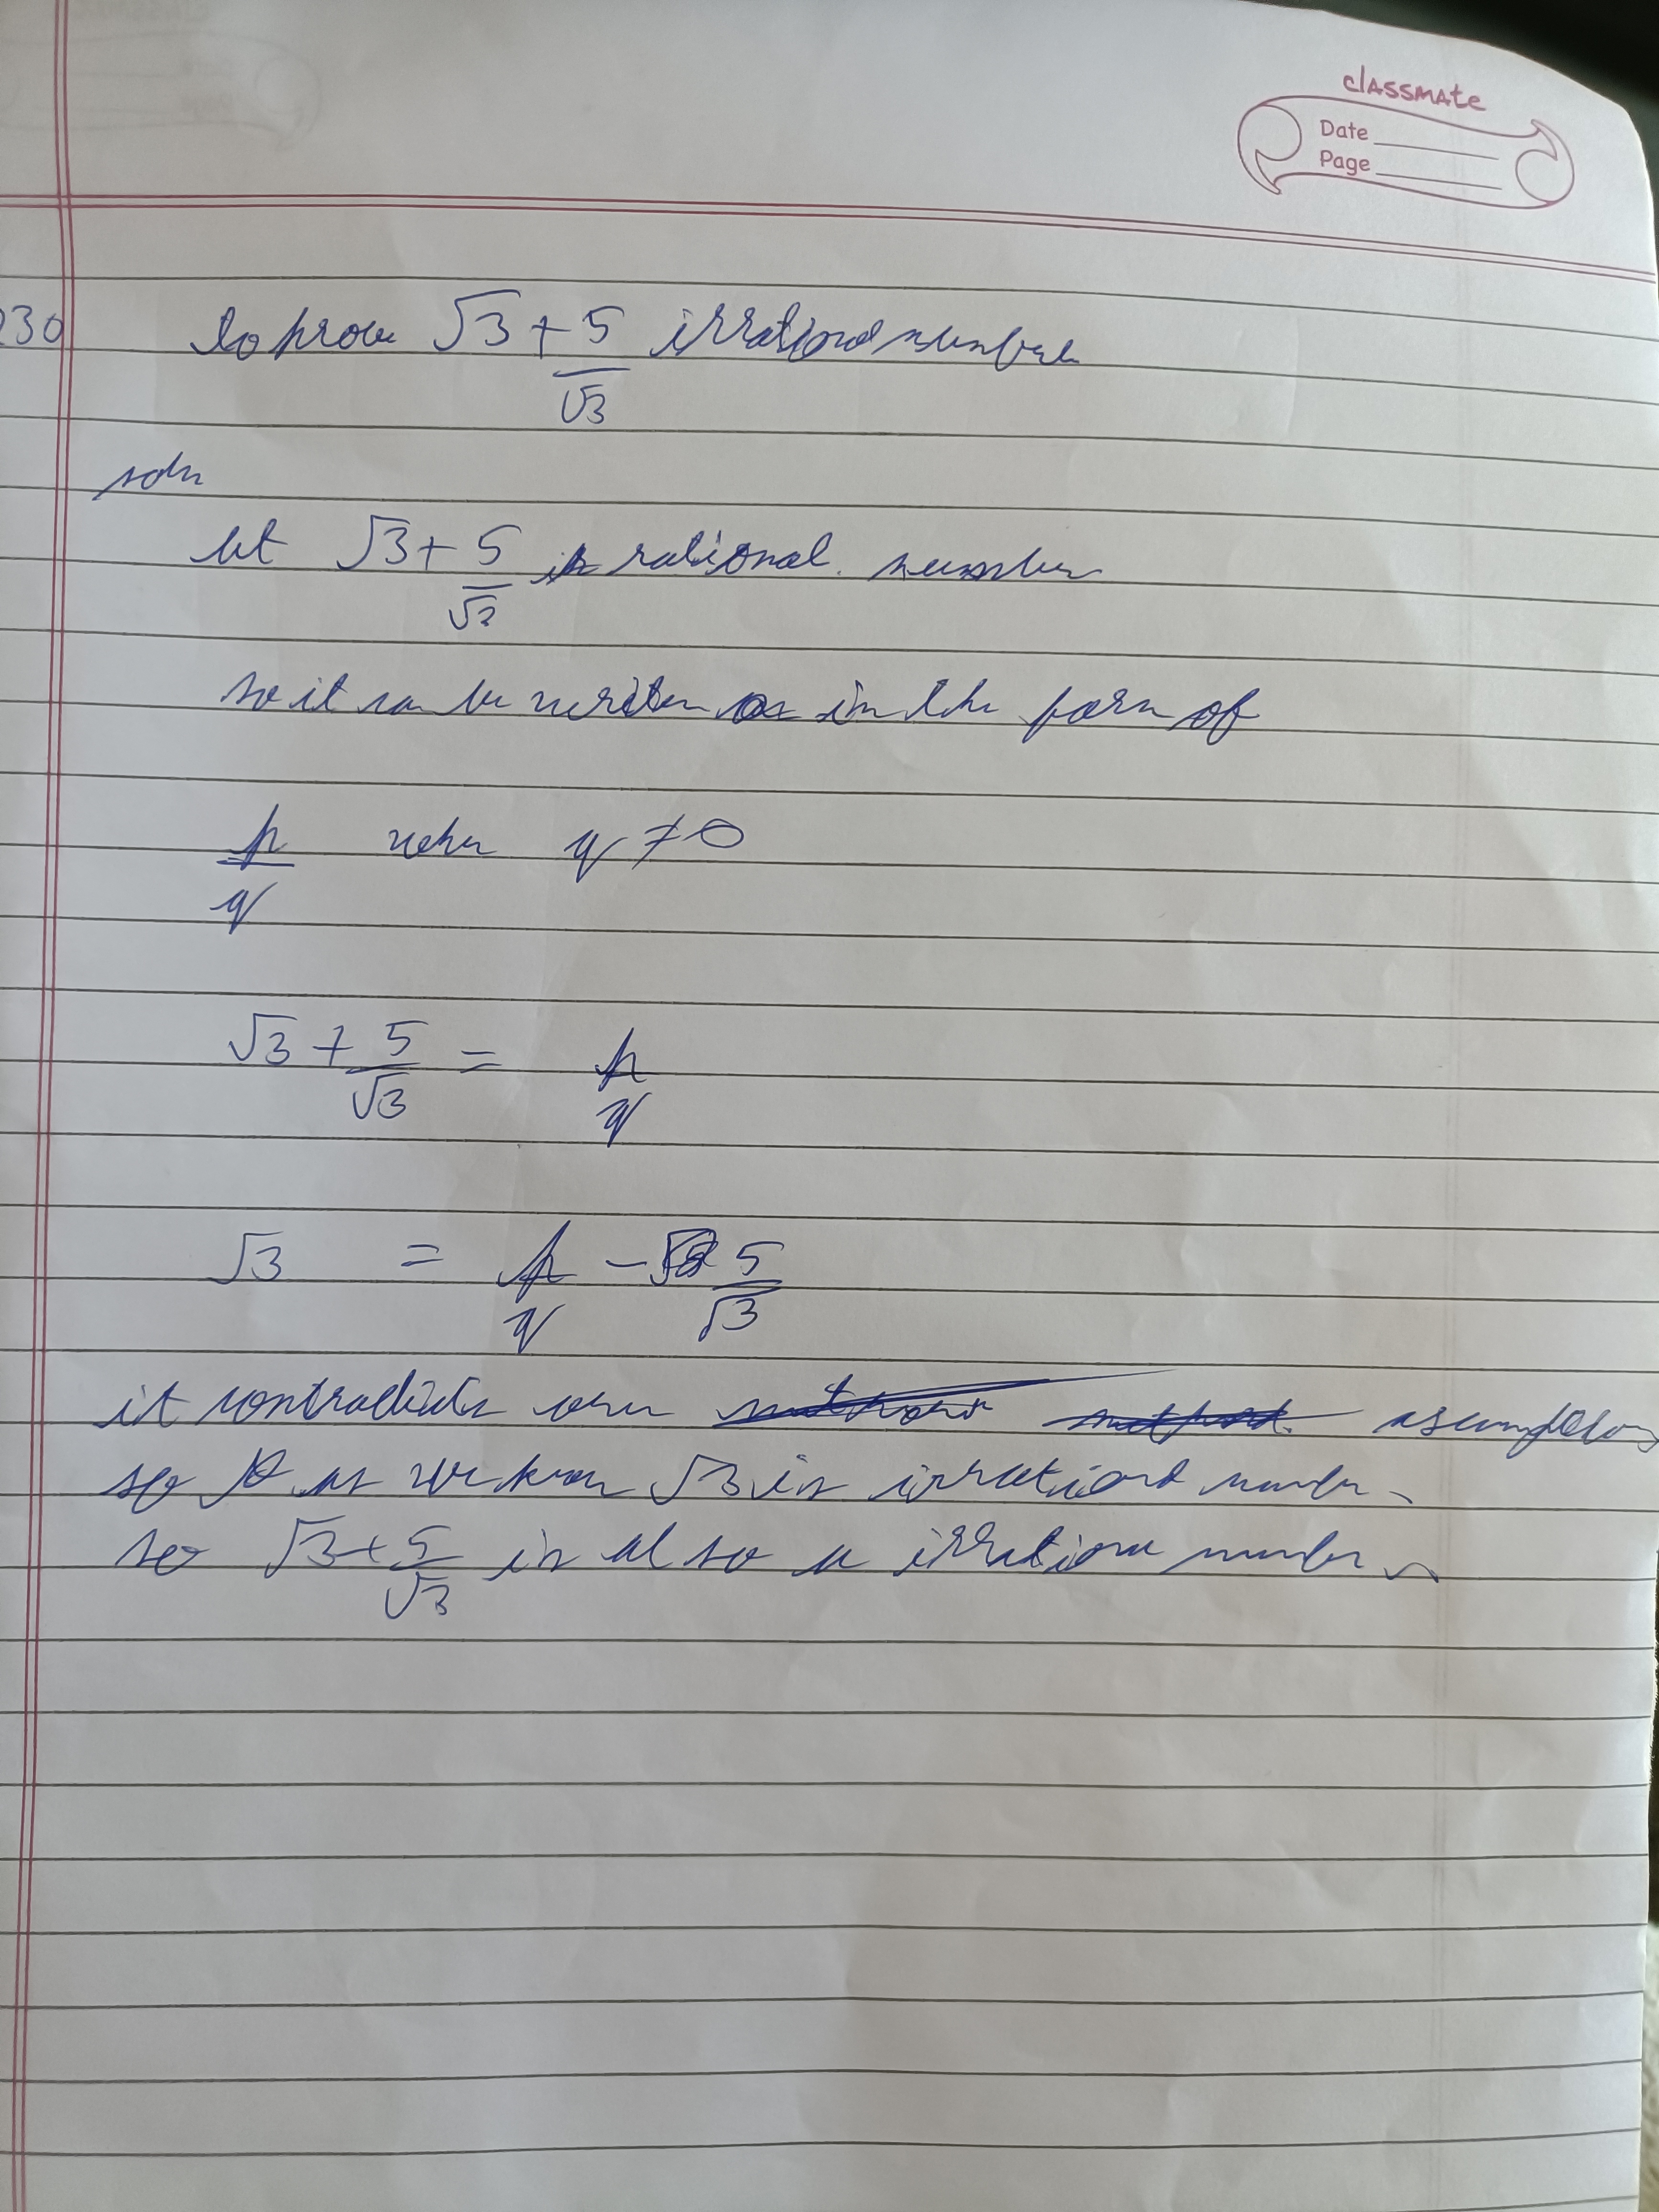 classmate
Date
Page
230 to prove √3 + 5/√3 irrational number
soln
let √3 + 5/√3 is rational. number
so it can be writen as in the form of
p/q when q ≠ 0
√3 + 5/√3 = p/q
√3 = p/q - 5/√3
it contradicts our assumption
so as we know √3 is irrational number
so √3 + 5/√3 is also a irrational number